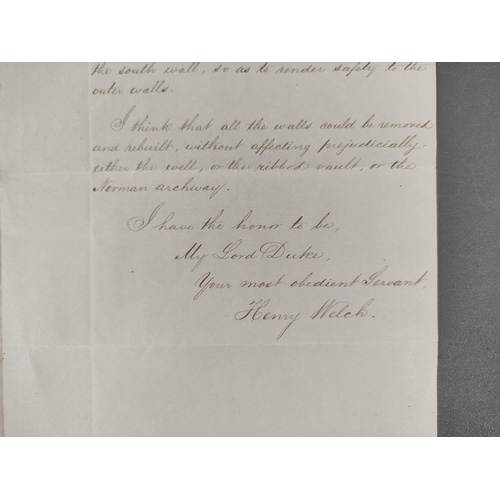 the south wall, so as to render safety to the
outer walls.
I think that all the walls could be removed
and rebuilt, without affecting prejudicially
either the well, or the ribbed vault, or the
Norman archway.
I have the honor to be,
My Lord Duke,
Your most obedient Servant,
Henry Welch.